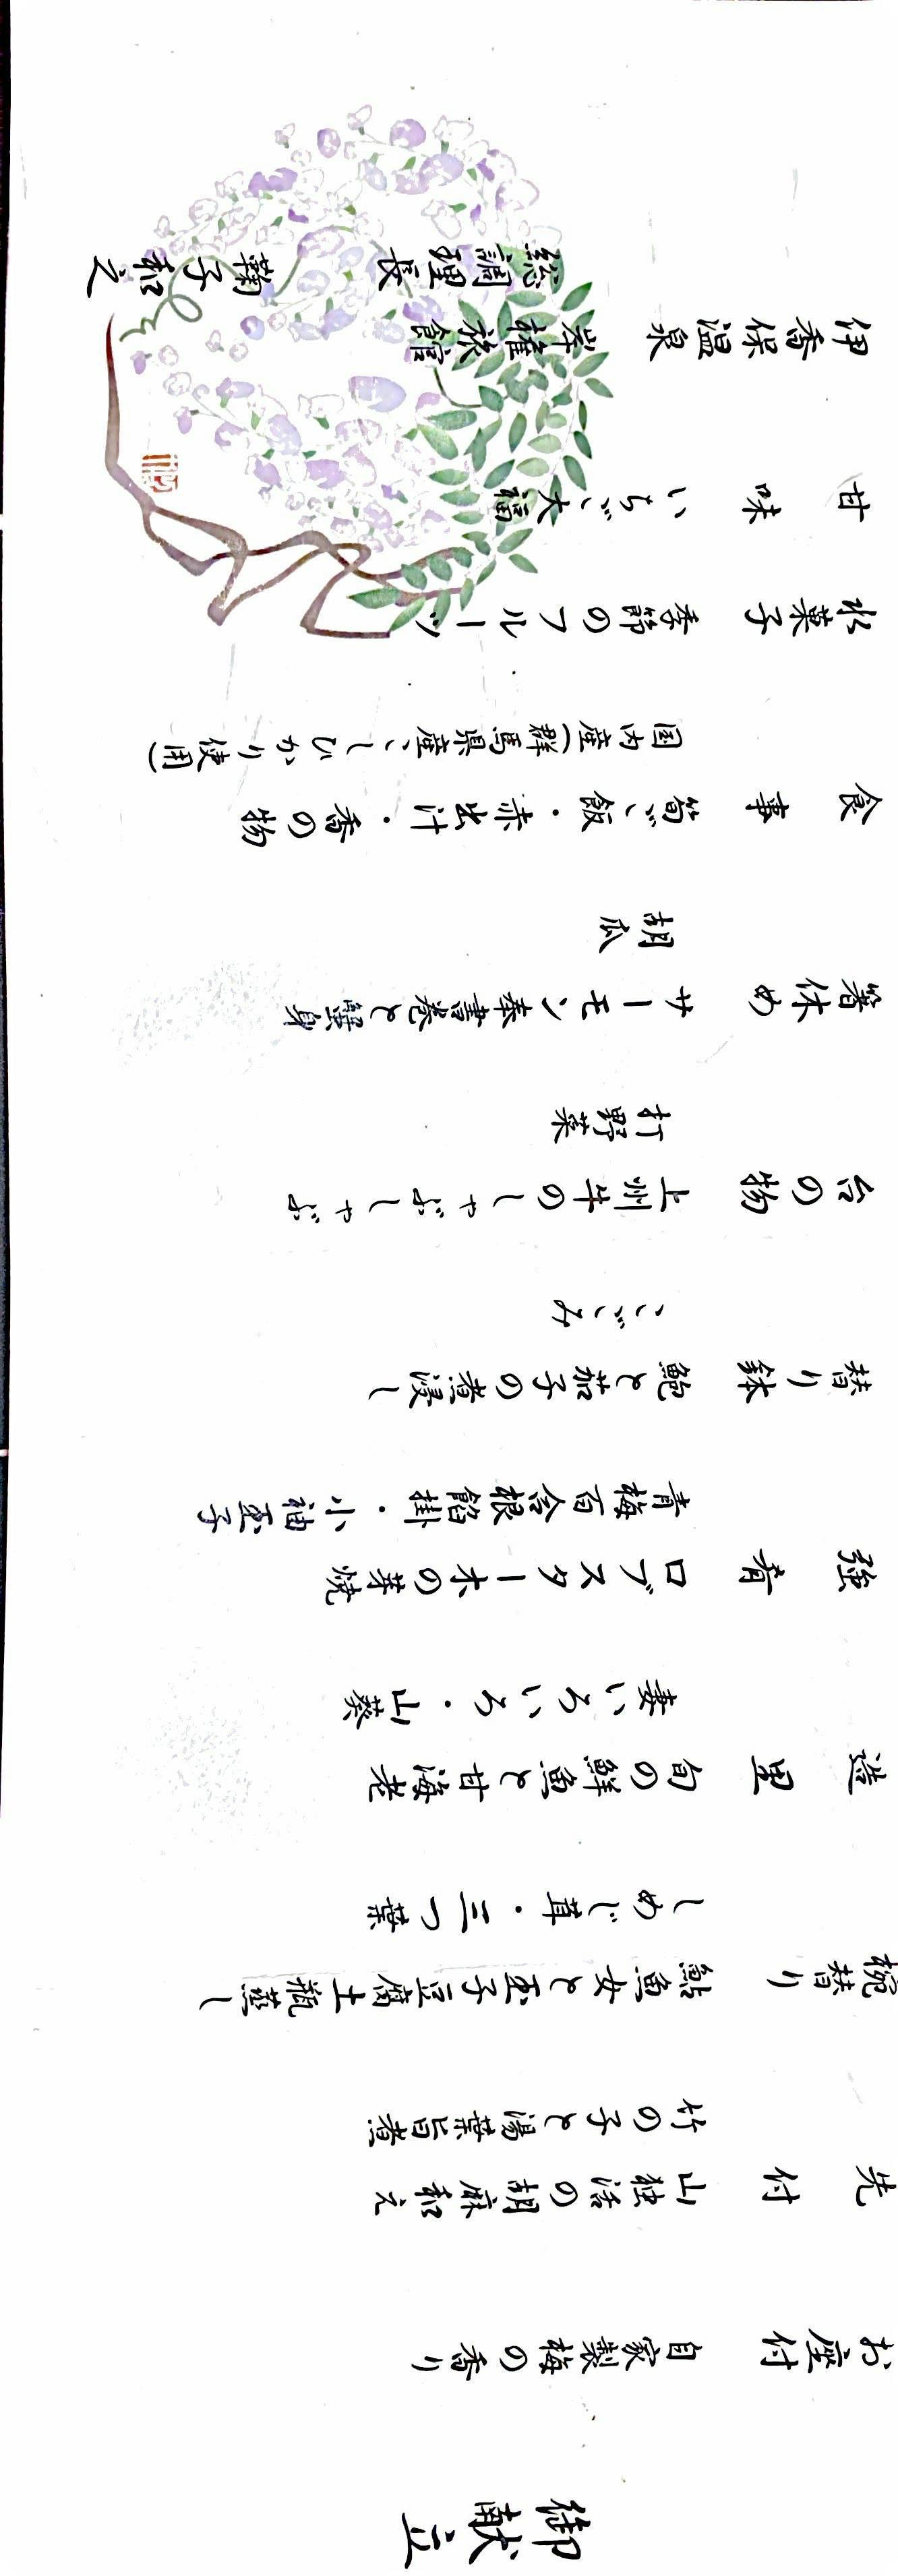 御献立
お座付 自家製梅の香り
先付 山独活の胡麻和え
竹の子と湯葉旨煮
椀替り 鮎魚女と玉子豆腐土瓶蒸し
しめじ茸・三つ葉
造里 旬の鮮魚と甘海老
妻いろいろ・山葵
強肴 ロブスター木の芽焼
青梅百合根餡掛・小袖玉子
替り鉢 鮑と茄子の煮浸し
こごみ
台の物 上州牛のしゃぶしゃぶ
打野菜
箸休め サーモン奉書巻と蟹身
胡瓜
食事 筍ご飯・赤出汁・香の物
国内産(群馬県産こしひかり使用)
水菓子 季節のフルーツ
甘味 いちご大福
伊香保温泉 岸権旅館
総調理長 鞠子和之